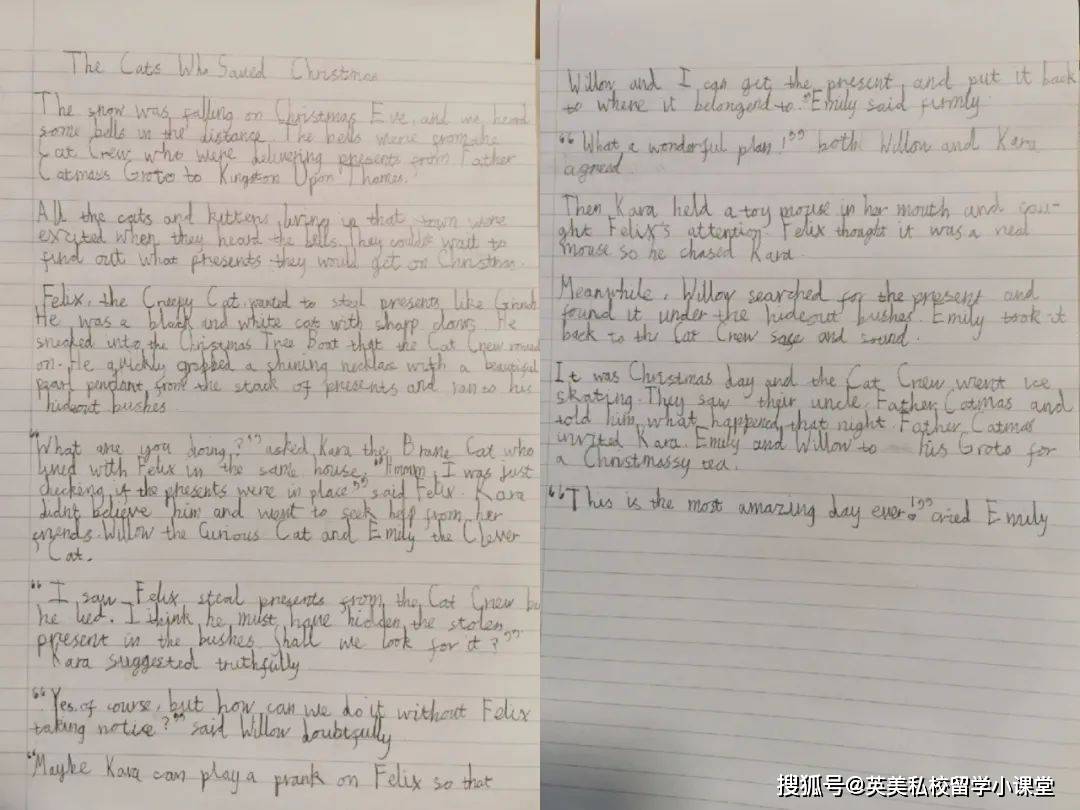 The Cats Who Saved Christmas
The snow was falling on Christmas Eve, and we heard
some bells in the distance. The bells were from the
Cat Crew who were delivering presents from Father
Catmass Groto to Kingston Upon Thames.
All the cats and kittens living in that town were
excited when they heard the bells. They couldn't wait to
find out what presents they would get on Christmas.
Felix, the Creepy Cat wanted to steal presents like Grinch
He was a black and white cat with sharp claws. He
sneaked into the Christmas Tree Boat that the Cat Crew
on. He quickly grapped a shining necklace with a beautiful
pearl pendant, from the stack of presents and ran to his
hideout bushes.
"What are you doing?" asked Kara the Brave Cat who
lived with Felix in the same house. "Hmmm, I was just
checking if the presents were in place" said Felix. Kara
didnt believe him and went to seek help from her
friends Willow the Curious Cat and Emily the Clever
Cat.
"I saw Felix steal presents from the Cat Crew bu
he lied. I think he must have hidden the stolen
present in the bushes shall we look for it?"
Kara suggested truthfully
"Yes, of course, but how can we do it without Felix
taking notice?" said Willow doubtfully
"Maybe Kara can play a prank on Felix so that
Willow and I can get the present and put it back
to where it belongend to." Emily said firmly.
"What a wonderful plan!" both Willow and Kara
agreed.
Then Kara held a toy mouse in her mouth and cau-
ght Felix's attention. Felix thought it was a real
mouse so he chased Kara.
Meanwhile, Willow searched for the present and
found it under the hideout bushes. Emily took it
back to the Cat Crew safe and sound.
It was Christmas day and the Cat Crew went ice
skating. They saw their uncle, Father Catmas and
told him what happened that night. Father Catmas
invited Kara, Emily and Willow to his Groto for
a Christmassy tea.
"This is the most amazing day ever!" cried Emily
搜狐号@英美私校留学小课堂